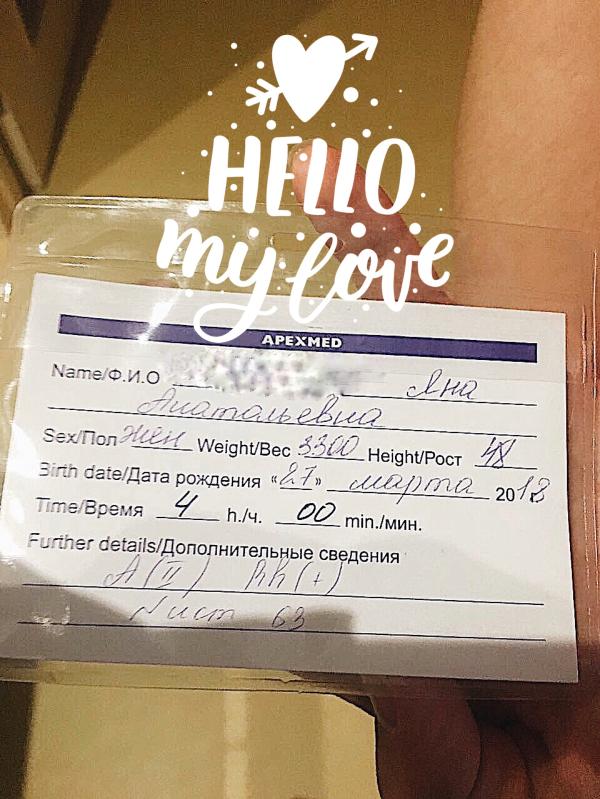 HELLO
my love
APEXMED
Name/Ф.И.О Яна
Анатольевна
Sex/Пол жен Weight/Вес 3300 Height/Рост 48
Birth date/Дата рождения «27» марта 2018
Time/Время 4 h./ч. 00 min./мин.
Further details/Дополнительные сведения
A(II) Rh(+)
№ист 63